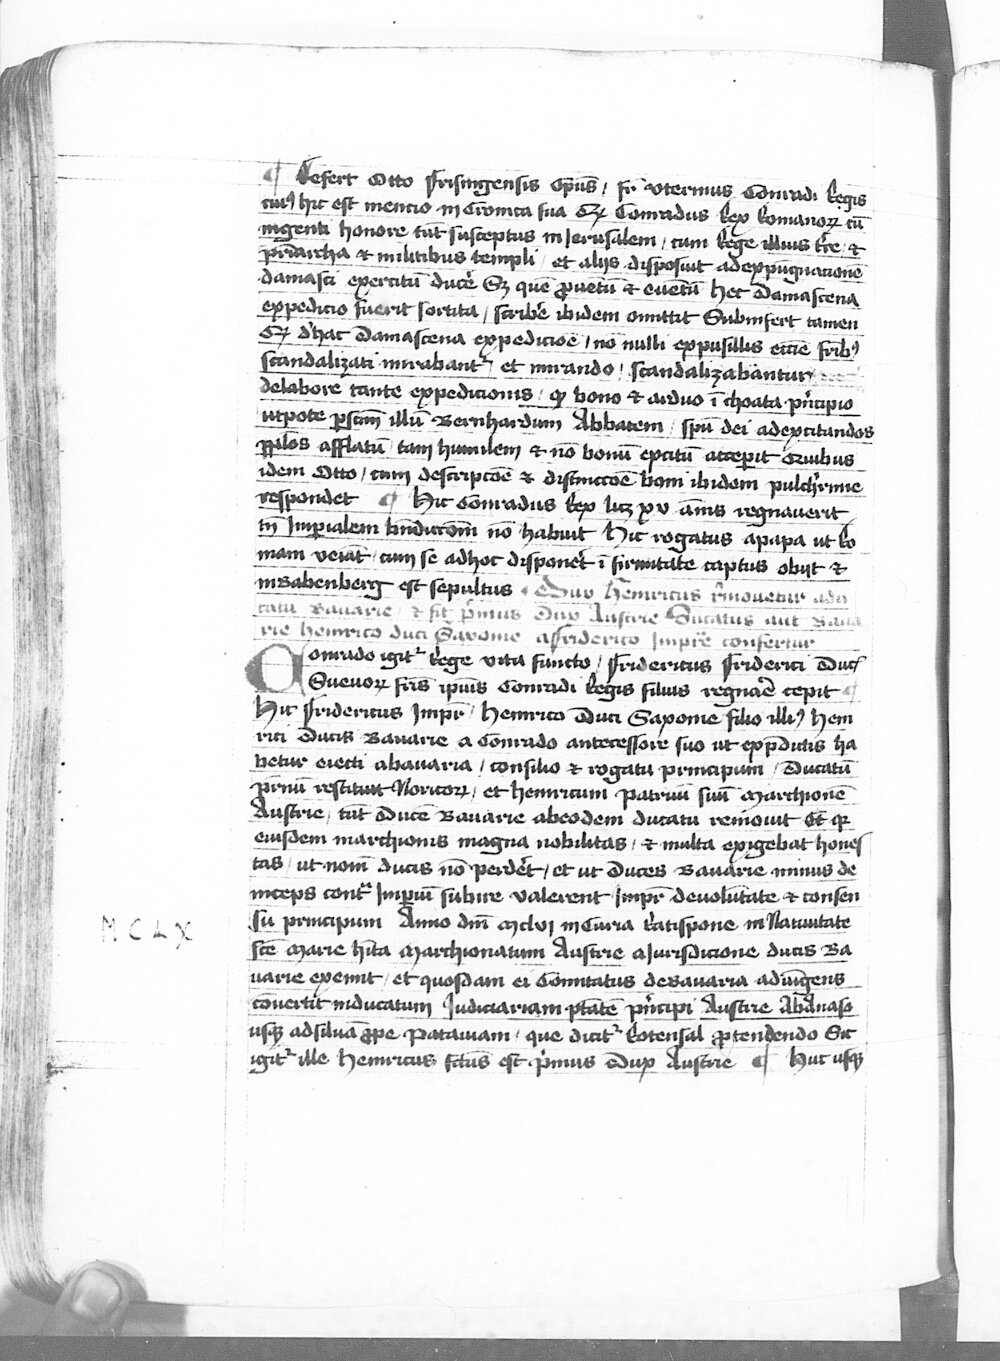 ¶ Refert Otto Frisingensis Epūs / fr̄ vterinus Conradi Regis
cui9 hic est mencio in Cronica sua Qꝫ Conradus Rex Romanoꝝ cū
ingenti honore tūc susceptus in Jerusalem / cum Rege illius tr̄e / et
pr̄iarcha et militibus templi / et alijs disposuit ad expugnacionē
damasci exercitū ducer̄ Sꝫ quē ꝓuetū et euetū hec Damascena
expedicio fuerit sortita / scriber̄ ibidem omittit Subinfert tamen
Qꝫ d'hac Damascena expedicioē / nō nulli ex pusillis ecc̄ie frīb9
scandalizati mirabantr / et mirando / scandalizabantur
de labore tante expedicionis / qꝫ bono et arduo īchoata pn̄cipio
utpote ꝑ scm̄ illū Bernhardum Abbatem / spū dei ad excitandos
ꝓplos afflatū / tam humilem et nō bonū exitū acceperit Quibus
idem Otto / cum descripcōe et distinccōe boni ibidem pulch'rime
respondet ¶ Hic Conradus Rex licꝫ xv annis regnauerit
tn̄ Imp̄ialem bn̄diccōm nō habuit Hic rogatus a papa ut Ro
mam veiat / cum se ad hoc disponer̄t īfirmitate captus obijt et
in Babenberg est sepultus . Dux Heinricus r̄mouetur a du
catu Bauarie / et fit p̄mus dux Austrie Ducatus aut Baua
rie heinrico duci Saxonie a Friderico Impr̄e confertur
Conrado igitr Rege vita functo / Fridericus Friderici Duc̄
Sueuoꝝ fr̄is ipsius Conradi Regis filius regnar̄e cepit ¶
Hic Fridericus Impr̄ / Heinrico Duci Saxonie filio illi9 Hein
rici Ducis Bauarie a Conrado antecessore suo ut ex p̄dictis ha
betur eiecti a bauaria / consilio et rogatu principum / Ducatū
p̄rnū restituit Noricoꝝ / et heinricum patruū suū Marchionē
Austrie / tūc Ducē Bauarie ab eodem ducatu remouit Et qꝫ
eiusdem marchionis magna nobilitas / et multa exigebat hones
tas / ut nom̄ ducis nō perder̄t / et ut Duces Bauarie minus de
inceps contra Imp̄ium subire valerent / Impr̄ de volūtate et consen
su principum Anno dn̄i Mclvj in Curia Ratispone in Natiuitate
scē Marie hīta Marchionatum Austrie a Jurisdicione ducis Ba
uarie exemit / et quosdam ei Comitatus de Bauaria adiūgens
conuertit in ducatum Judiciariam ptātē pn̄cipi Austrie Ab Anaso
usqꝫ ad siluā ꝓpe Patauiam / que dicitr Rotensal ꝓtendendo Sic
igitr ille Heinricus fctūs est p̄mus Dux Austrie ¶ Huc usqꝫ
MCLX